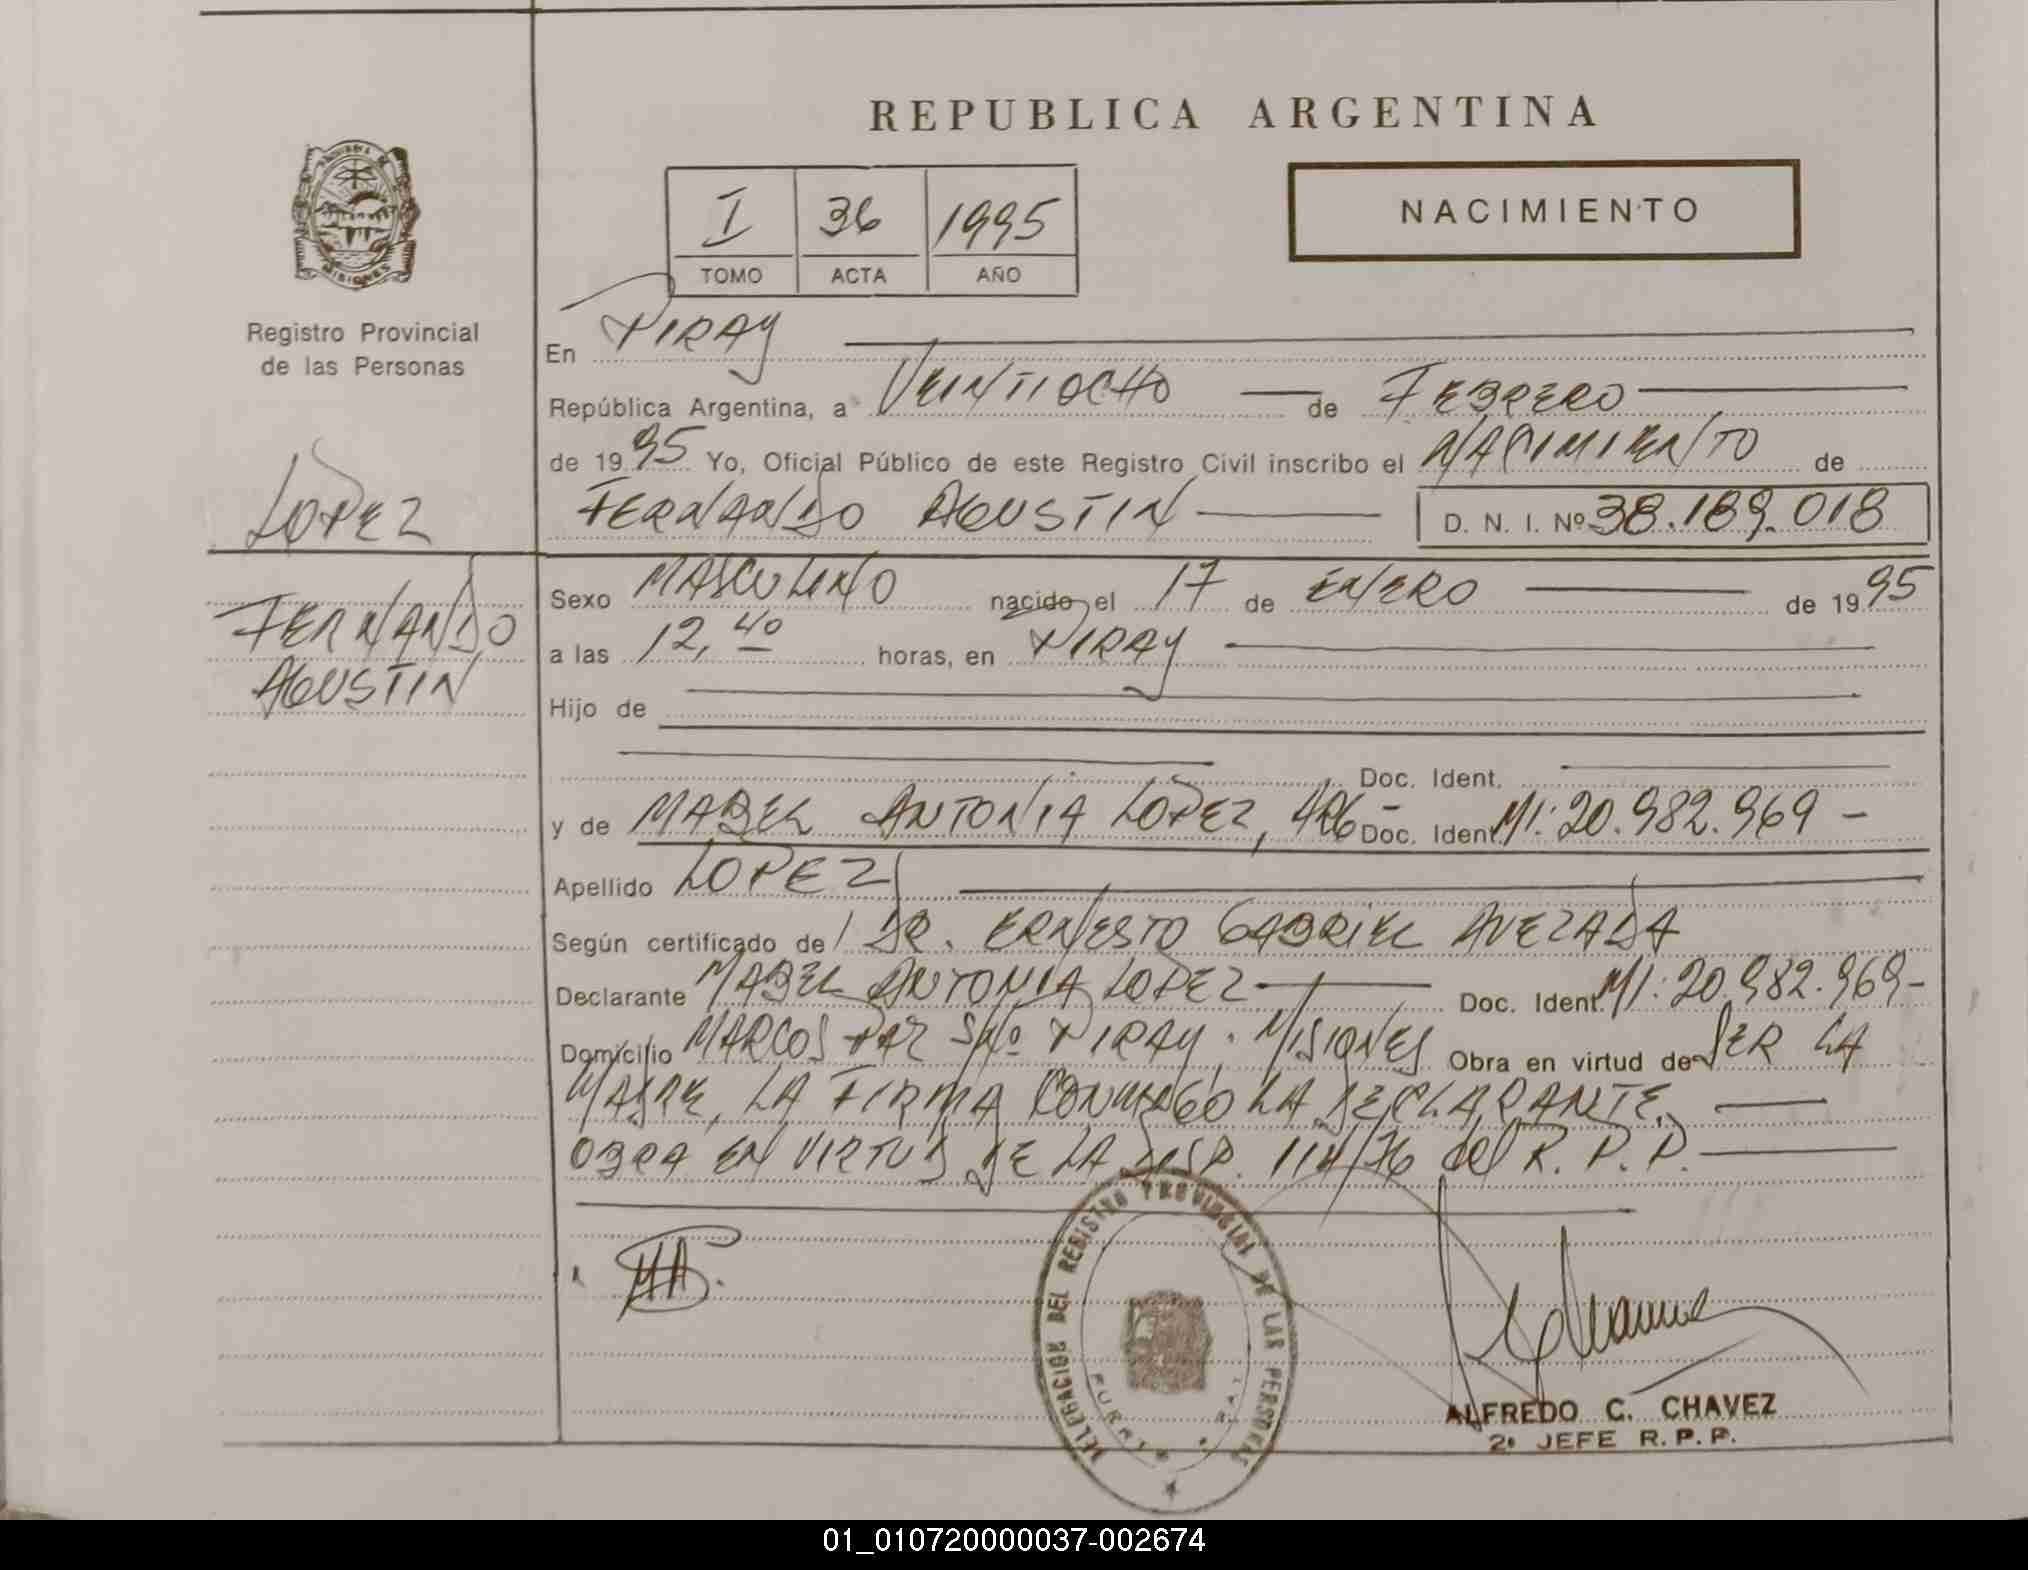 REPUBLICA ARGENTINA
PROVINCIA DE
MISIONES
Registro Provincial
de las Personas
I 36 1995
TOMO ACTA AÑO
NACIMIENTO
LOPEZ
FERNANDO
AGUSTIN
En PIRAY
República Argentina, a VEINTIOCHO de FEBRERO
de 1995 Yo, Oficial Público de este Registro Civil inscribo el NACIMIENTO de
FERNANDO AGUSTIN D. N. I. Nº 38.189.018
Sexo MASCULINO nacido el 17 de ENERO de 1995
a las 12,40 horas, en PIRAY
Hijo de
Doc. Ident.
y de MABEL ANTONIA LOPEZ, ARG- Doc. Ident. MI: 20.982.969 -
Apellido LOPEZ
Según certificado de DR. ERNESTO GABRIEL AVEZADA
Declarante MABEL ANTONIA LOPEZ Doc. Ident. MI: 20.982.969-
Domicilio MARCOS PAZ S/Nº PIRAY, MISIONES Obra en virtud de SER LA
MADRE, LA FIRMA CONMIGO LA DECLARANTE.
OBRA EN VIRTUD DE LA DISP. 114/76 del R. P. P.
DELEGACION DEL REGISTRO PROVINCIAL DE LAS PERSONAS
ALFREDO C. CHAVEZ
2º JEFE R. P. P.
01_010720000037-002674